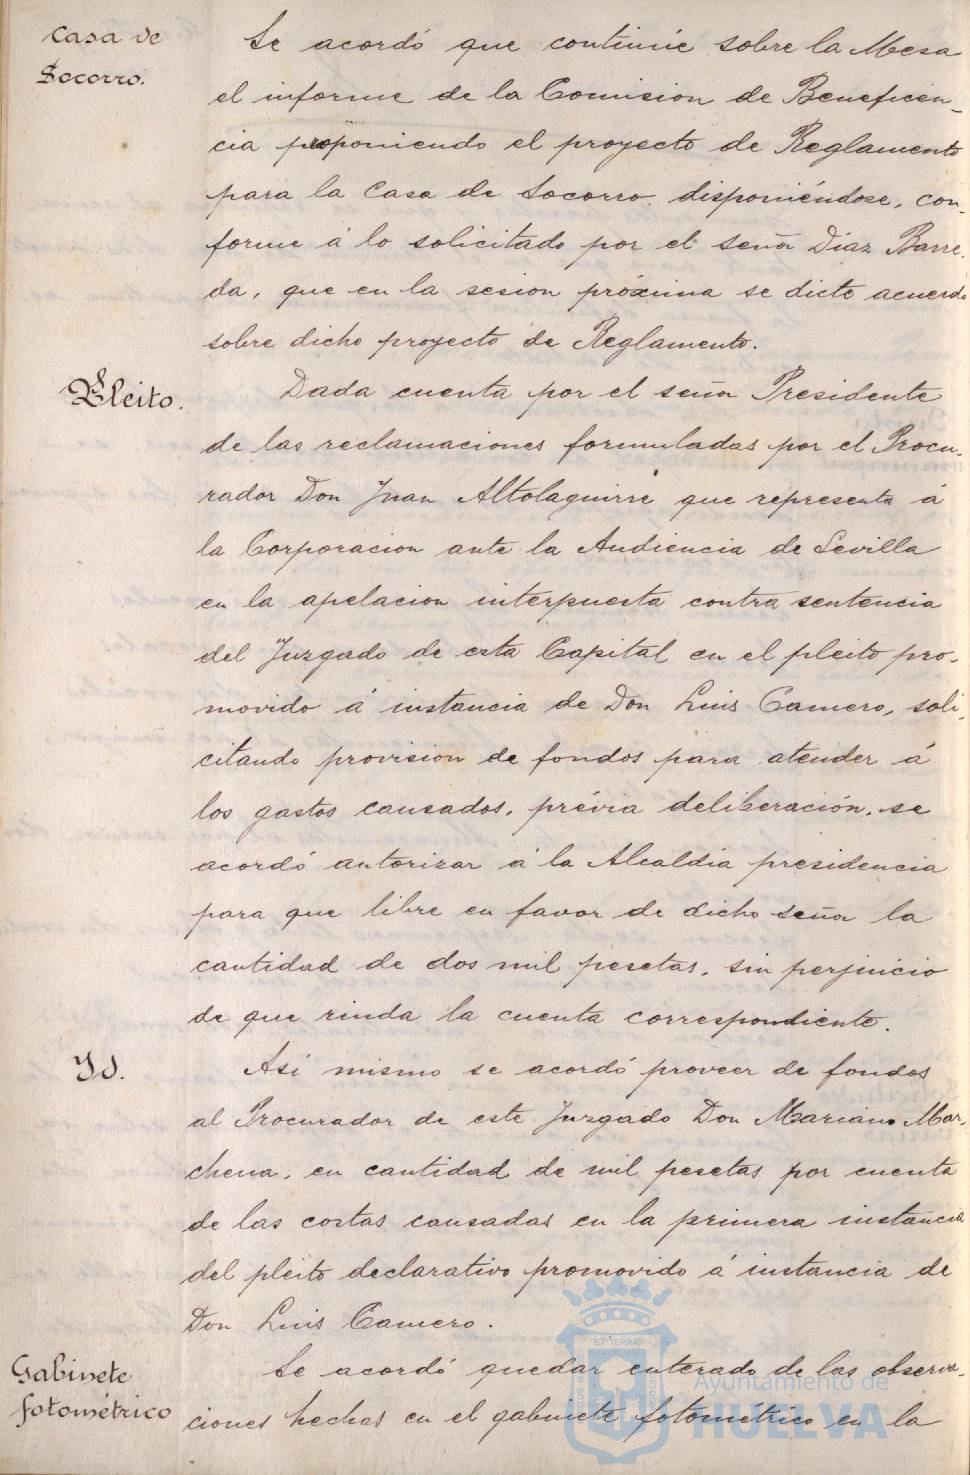 Casa de
Socorro.
Se acordó que continúe sobre la Mesa
el informe de la Comision de Beneficen-
cia proponiendo el proyecto de Reglamento
para la Casa de Socorro. disponiéndose, con-
forme á lo solicitado por el señor Diaz Barre-
da, que en la sesion próxima se dicte acuerdo
sobre dicho proyecto de Reglamento.
Pleito.
Dada cuenta por el señor Presidente
de las reclamaciones formuladas por el Procu-
rador Don Juan Altolaguirre que representa á
la Corporacion ante la Audiencia de Sevilla
en la apelacion interpuesta contra sentencia
del Juzgado de esta Capital en el pleito pro-
movido á instancia de Don Luis Camero, soli-
citando provision de fondos para atender á
los gastos causados, prévia deliberación, se
acordó autorizar á la Alcaldia presidencia
para que libre en favor de dicho señor la
cantidad de dos mil pesetas, sin perjuicio
de que rinda la cuenta correspondiente.
Id.
Asi mismo se acordó proveer de fondos
al Procurador de este Juzgado Don Mariano Mar-
chena, en cantidad de mil pesetas por cuenta
de las costas causadas en la primera instancia
del pleito declarativo promovido á instancia de
Don Luis Camero.
Gabinete
fotométrico
Se acordó quedar enterado de las observa-
ciones hechas en el gabinete fotométrico en la
Ayuntamiento de
HUELVA